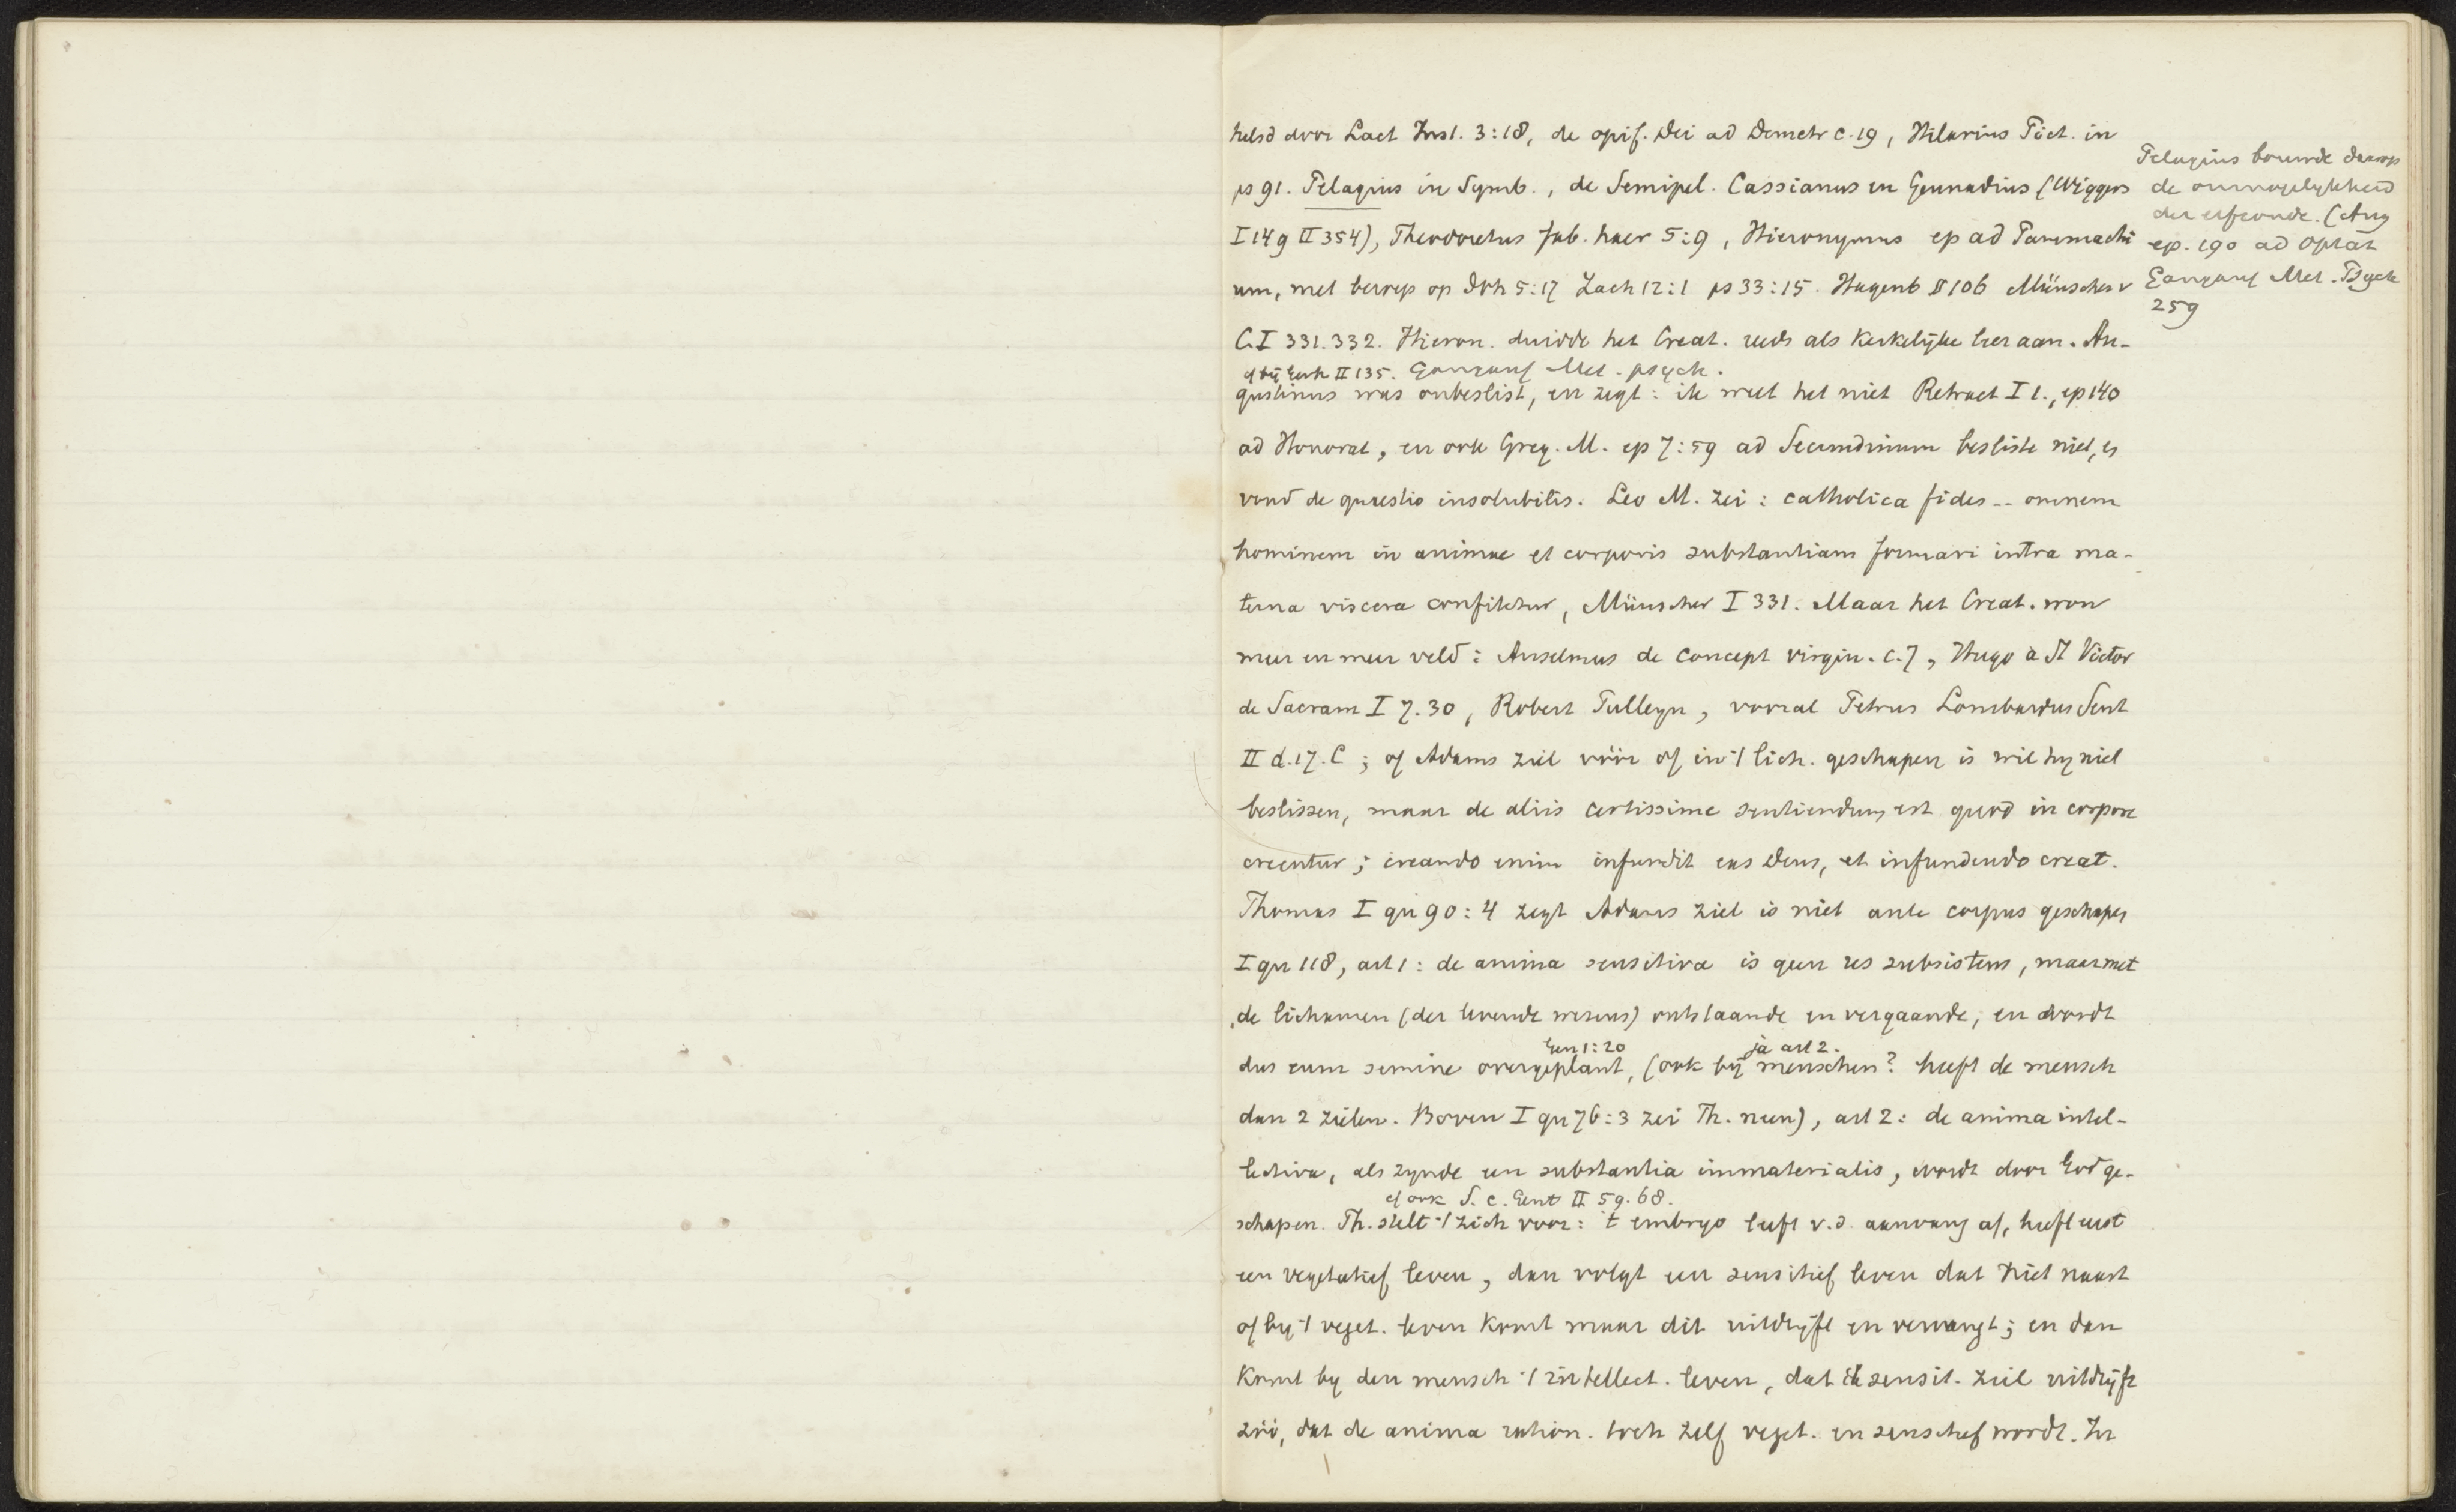 helsd door Lact Inst. 3:18, de opif. Dei ad Demetr c. 19, Hilarius Pict. in
ps 91. Pelagius in Symb., de Semipel. Cassianus en Gennadius (Wiggers
I 149 II 354), Theodoretus fab. haer 5:9, Hieronymus ep ad Pammachi
um, met beroep op Joh 5:17 Zach 12:1 ps 33:15. Hagenb II 106 Münscher v
C. I 331. 332. Hieron. duidde het Creat. reeds als Kerkelijke leer aan. Au-
cf bij II 135. Gangauf Met. psych.
gustinus was onbeslist, en zegt: ik weet het niet Retract I 1., ep 140
ad Honorat, en ook Greg. M. ep 7:59 ad Secundinum besliste niet, en
vond de quaestio insolubilis. Leo M. zei: catholica fides -- omnem
hominem in animae et corporis substantiam formari intra ma-
terna viscera confitetur, Münscher I 331. Maar het Creat. won
meer en meer veld: Anselmus de concept virgin. c. 7, Hugo à St Victor
de Sacram I 7. 30, Robert Pulleyn, vooral Petrus Lombardus Sent
II d. 17. C; of Adams ziel vóór of in 't lich. geschapen is wil hy niet
beslissen, maar de aliis certissime sentiendum est quod in corpore
creentur; creando enim infundit eas Deus, et infundendo creat.
Thomas I qu 90:4 zegt Adams ziel is niet ante corpus geschapen
I qu 118, art 1: de anima sensitiva is geen res subsistens, maar met
de lichamen (der levende wezens) ontstaande en vergaande, en wordt
Gen 1:20 ja art 2.
dus cum semine overgeplant, (ook bij menschen? heeft de mensch
dan 2 zielen. Boven I qu 76:3 zei Th. neen), art 2: de anima intel-
lectiva, als zynde een substantia immaterialis, wordt door God ge-
cf ook S. c. Gent II 59. 68.
schapen. Th. stelt 't zich voor: 't embryo leeft v. d. aanvang af, heeft eerst
een vegetatief leven, dan volgt een sensitief leven dat niet naast
of by 't veget. leven komt maar dit uitdrijft en vervangt; en dan
komt by den mensch 't intellect. leven, dat de sensit. ziel uitdrijft
zóó, dat de anima ration. toch zelf veget. en sensitief wordt. In
Pelagius bouwde daarop
de onmogelykheid
der erfzonde. (Aug
ep. 190 ad Optat
Gangauf Met. Psych
259